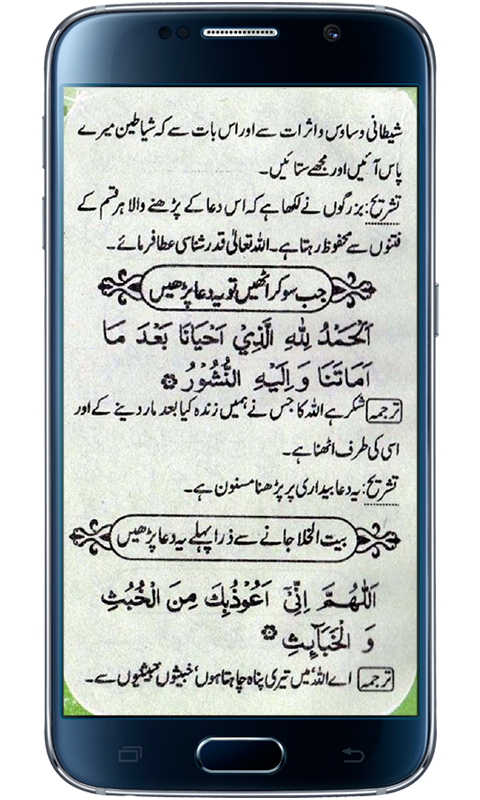 شیطانی وساوس و اثرات سے اور اس بات سے کہ شیاطین میرے
پاس آئیں اور مجھے ستائیں۔
تشریح: بزرگوں نے لکھا ہے کہ اس دعا کے پڑھنے والا ہر قسم کے
فتنوں سے محفوظ رہتا ہے۔ اللہ تعالیٰ قدر شناسی عطا فرمائے۔
جب سو کر اٹھیں تو یہ دعا پڑھیں
اَلْحَمْدُ لِلّٰهِ الَّذِيْ اَحْيَانَا بَعْدَ مَا
اَمَاتَنَا وَ اِلَيْهِ النُّشُوْرُ
ترجمہ شکر ہے اللہ کا جس نے ہمیں زندہ کیا بعد مار دینے کے اور
اسی کی طرف اٹھنا ہے۔
تشریح: یہ دعا بیداری پر پڑھنا مسنون ہے۔
بیت الخلا جانے سے ذرا پہلے یہ دعا پڑھیں
اَللّٰهُمَّ اِنِّیْٓ اَعُوْذُبِكَ مِنَ الْخُبُثِ
وَ الْخَبَآئِثِ
ترجمہ اے اللہ میں تیری پناہ چاہتا ہوں خبیثوں خبیثیوں سے۔